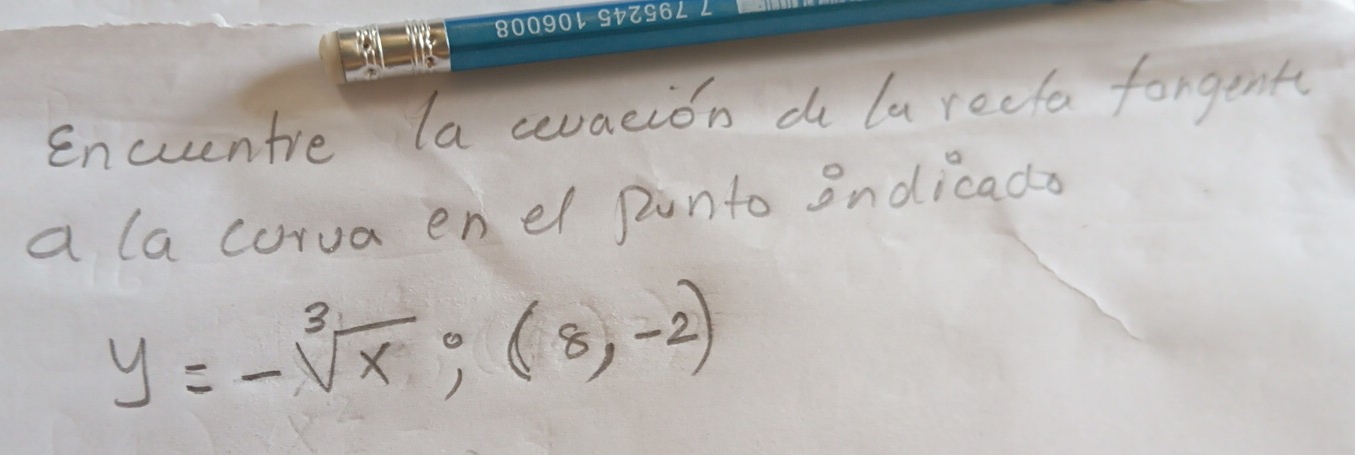 7 795245 106008
Encuentre la ecuación de la recta tangente
a la curva en el punto indicado
y = -∛x ; (8, -2)